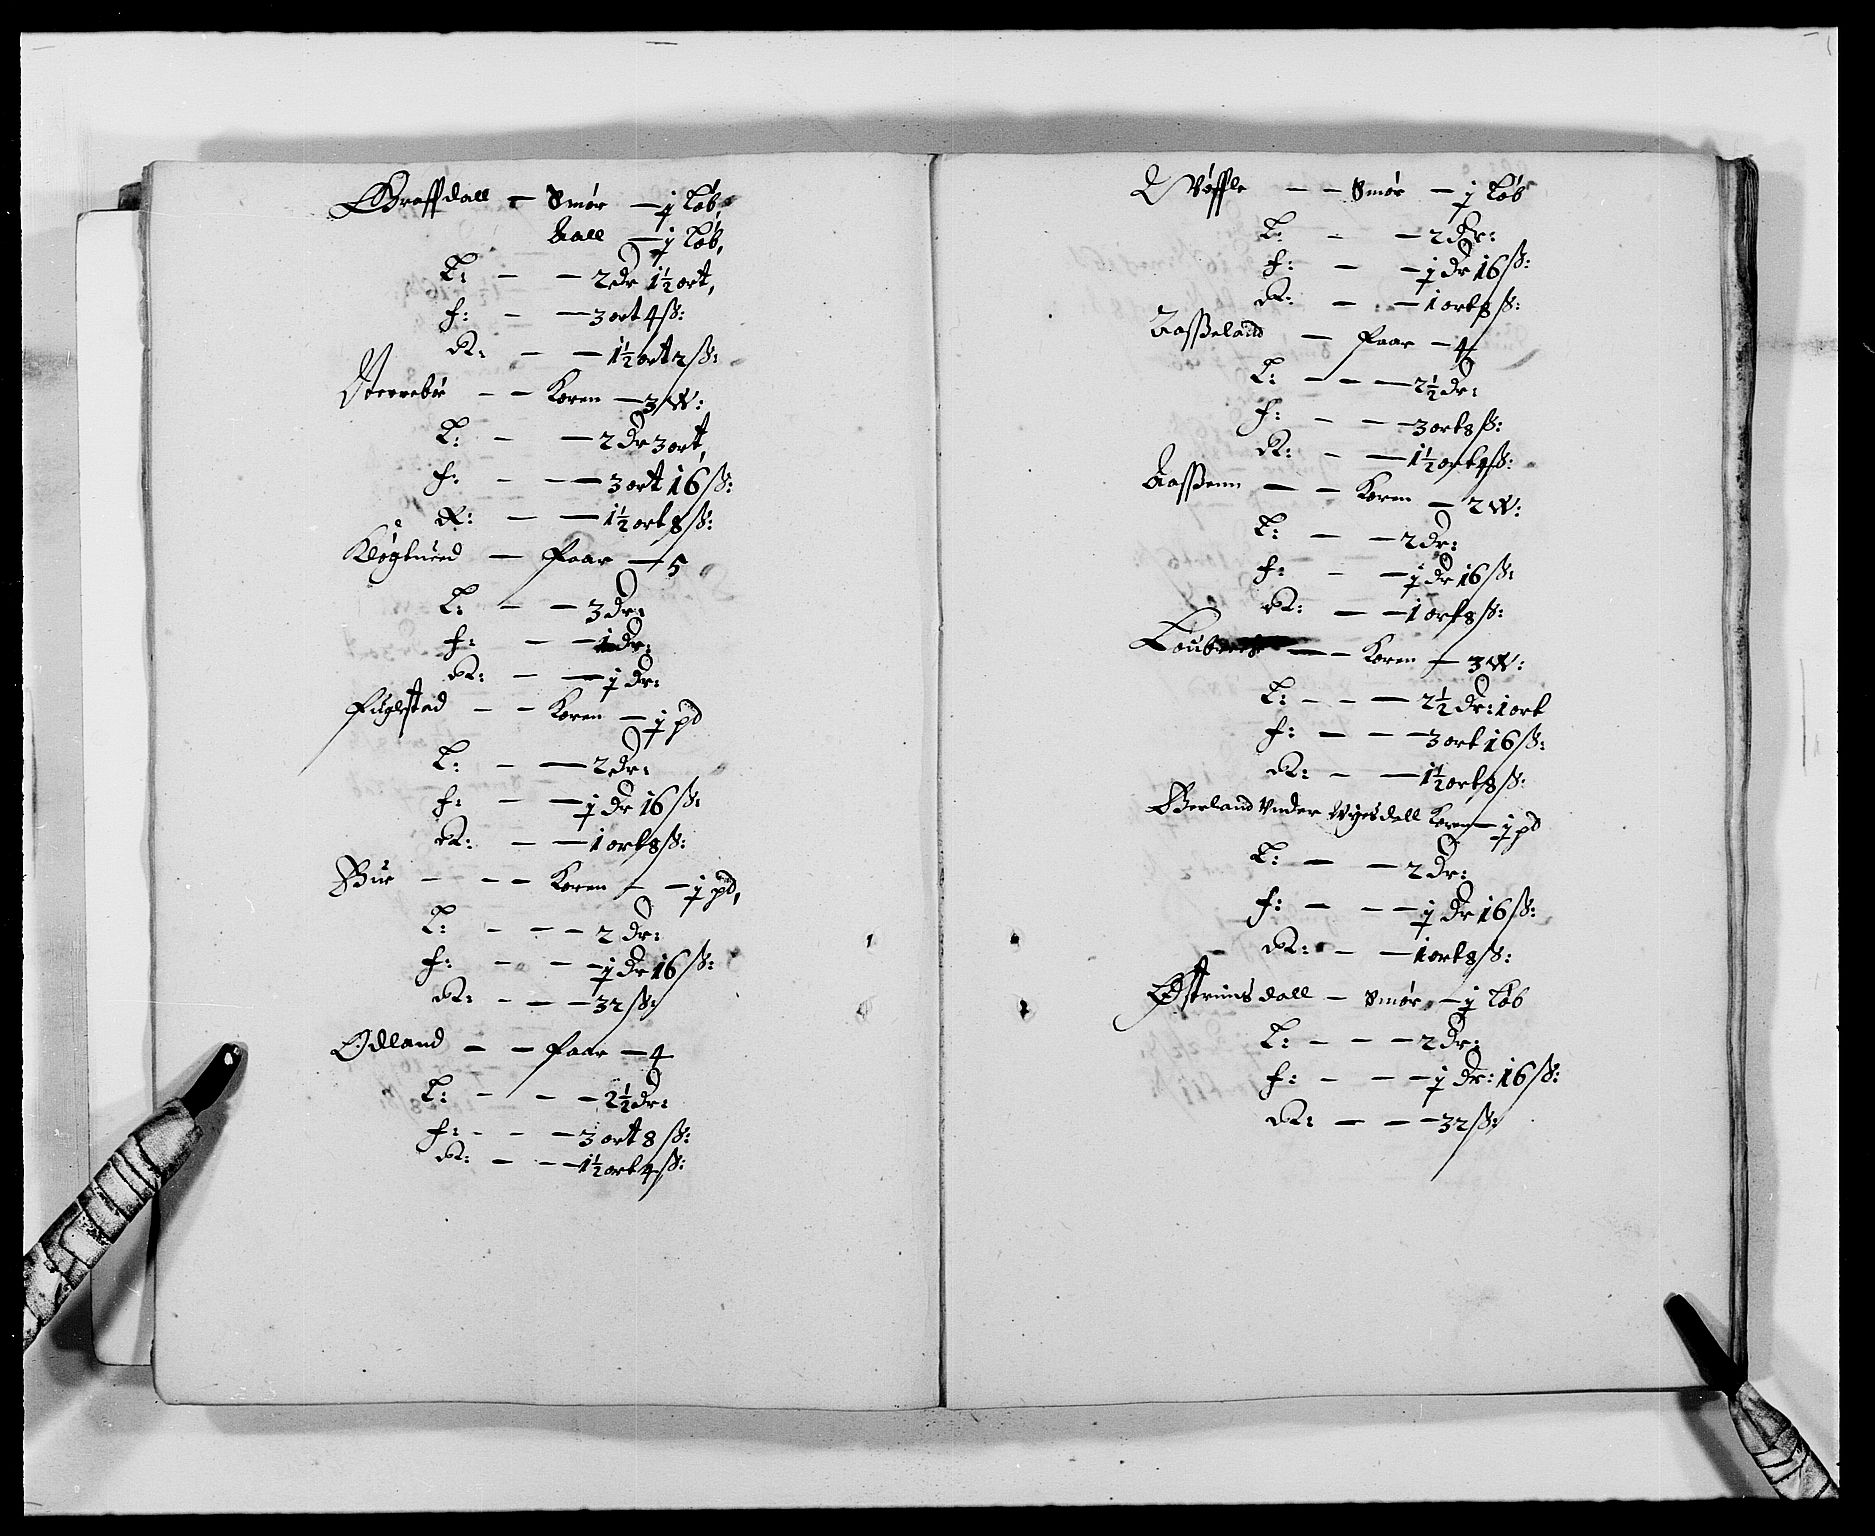 Greffdall - Smør - j løb,
Aall - j løb,
L: - - 2 dr 1½ ort,
f: - - 3 ort 4 ß:
R: - - 1½ ort 2 ß:
Sterrebøe - - Koren - 3 W:
L: - - 2 dr 3 ort,
f: - - - 3 ort 16 ß:
R: - - 1½ ort 8 ß:
Kløgtued - faar - 5
L: - - 3 dr:
f: - - 1 dr:
R: - - j dr:
Fuglestad - - Koren - j pd
L: - - 2 dr:
f: - - j dr 16 ß:
R: - - 1 ort 8 ß:
Bue - - - Koren - - j pd,
L: - - - 2 dr:
f: - - - j dr 16 ß:
R: - - - 32 ß:
Ødland - - faar - 4
L: - - - 2½ dr:
f: - - - 3 ort 8 ß:
R: - - - 1½ ort 4 ß:
- - Smør - j løb
L: - - 2 dr:
f: - - j dr 16 ß:
R: - - 1 ort 8 ß:
Aasseland - faar - 4
L: - - - 2½ dr:
f: - - - 3 ort 8 ß:
R: - - 1½ ort 4 ß:
Aassenn - - Koren - 2 W:
L: - - 2 dr:
f: - - j dr 16 ß:
R: - - 1 ort 8 ß:
- - Koren - 3 W:
L: - - - 2½ dr: 1 ort
f: - - - 3 ort 16 ß:
R: - - 1½ ort 8 ß:
Berland Vnder Koren - j pd
L: - - 2 dr:
f: - - - j dr 16 ß:
R: - - 1 ort 8 ß:
Østrimsdall - Smør - j løb
L: - - - 2 dr:
f: - - - j dr: 16 ß:
R: - - - 32 ß: